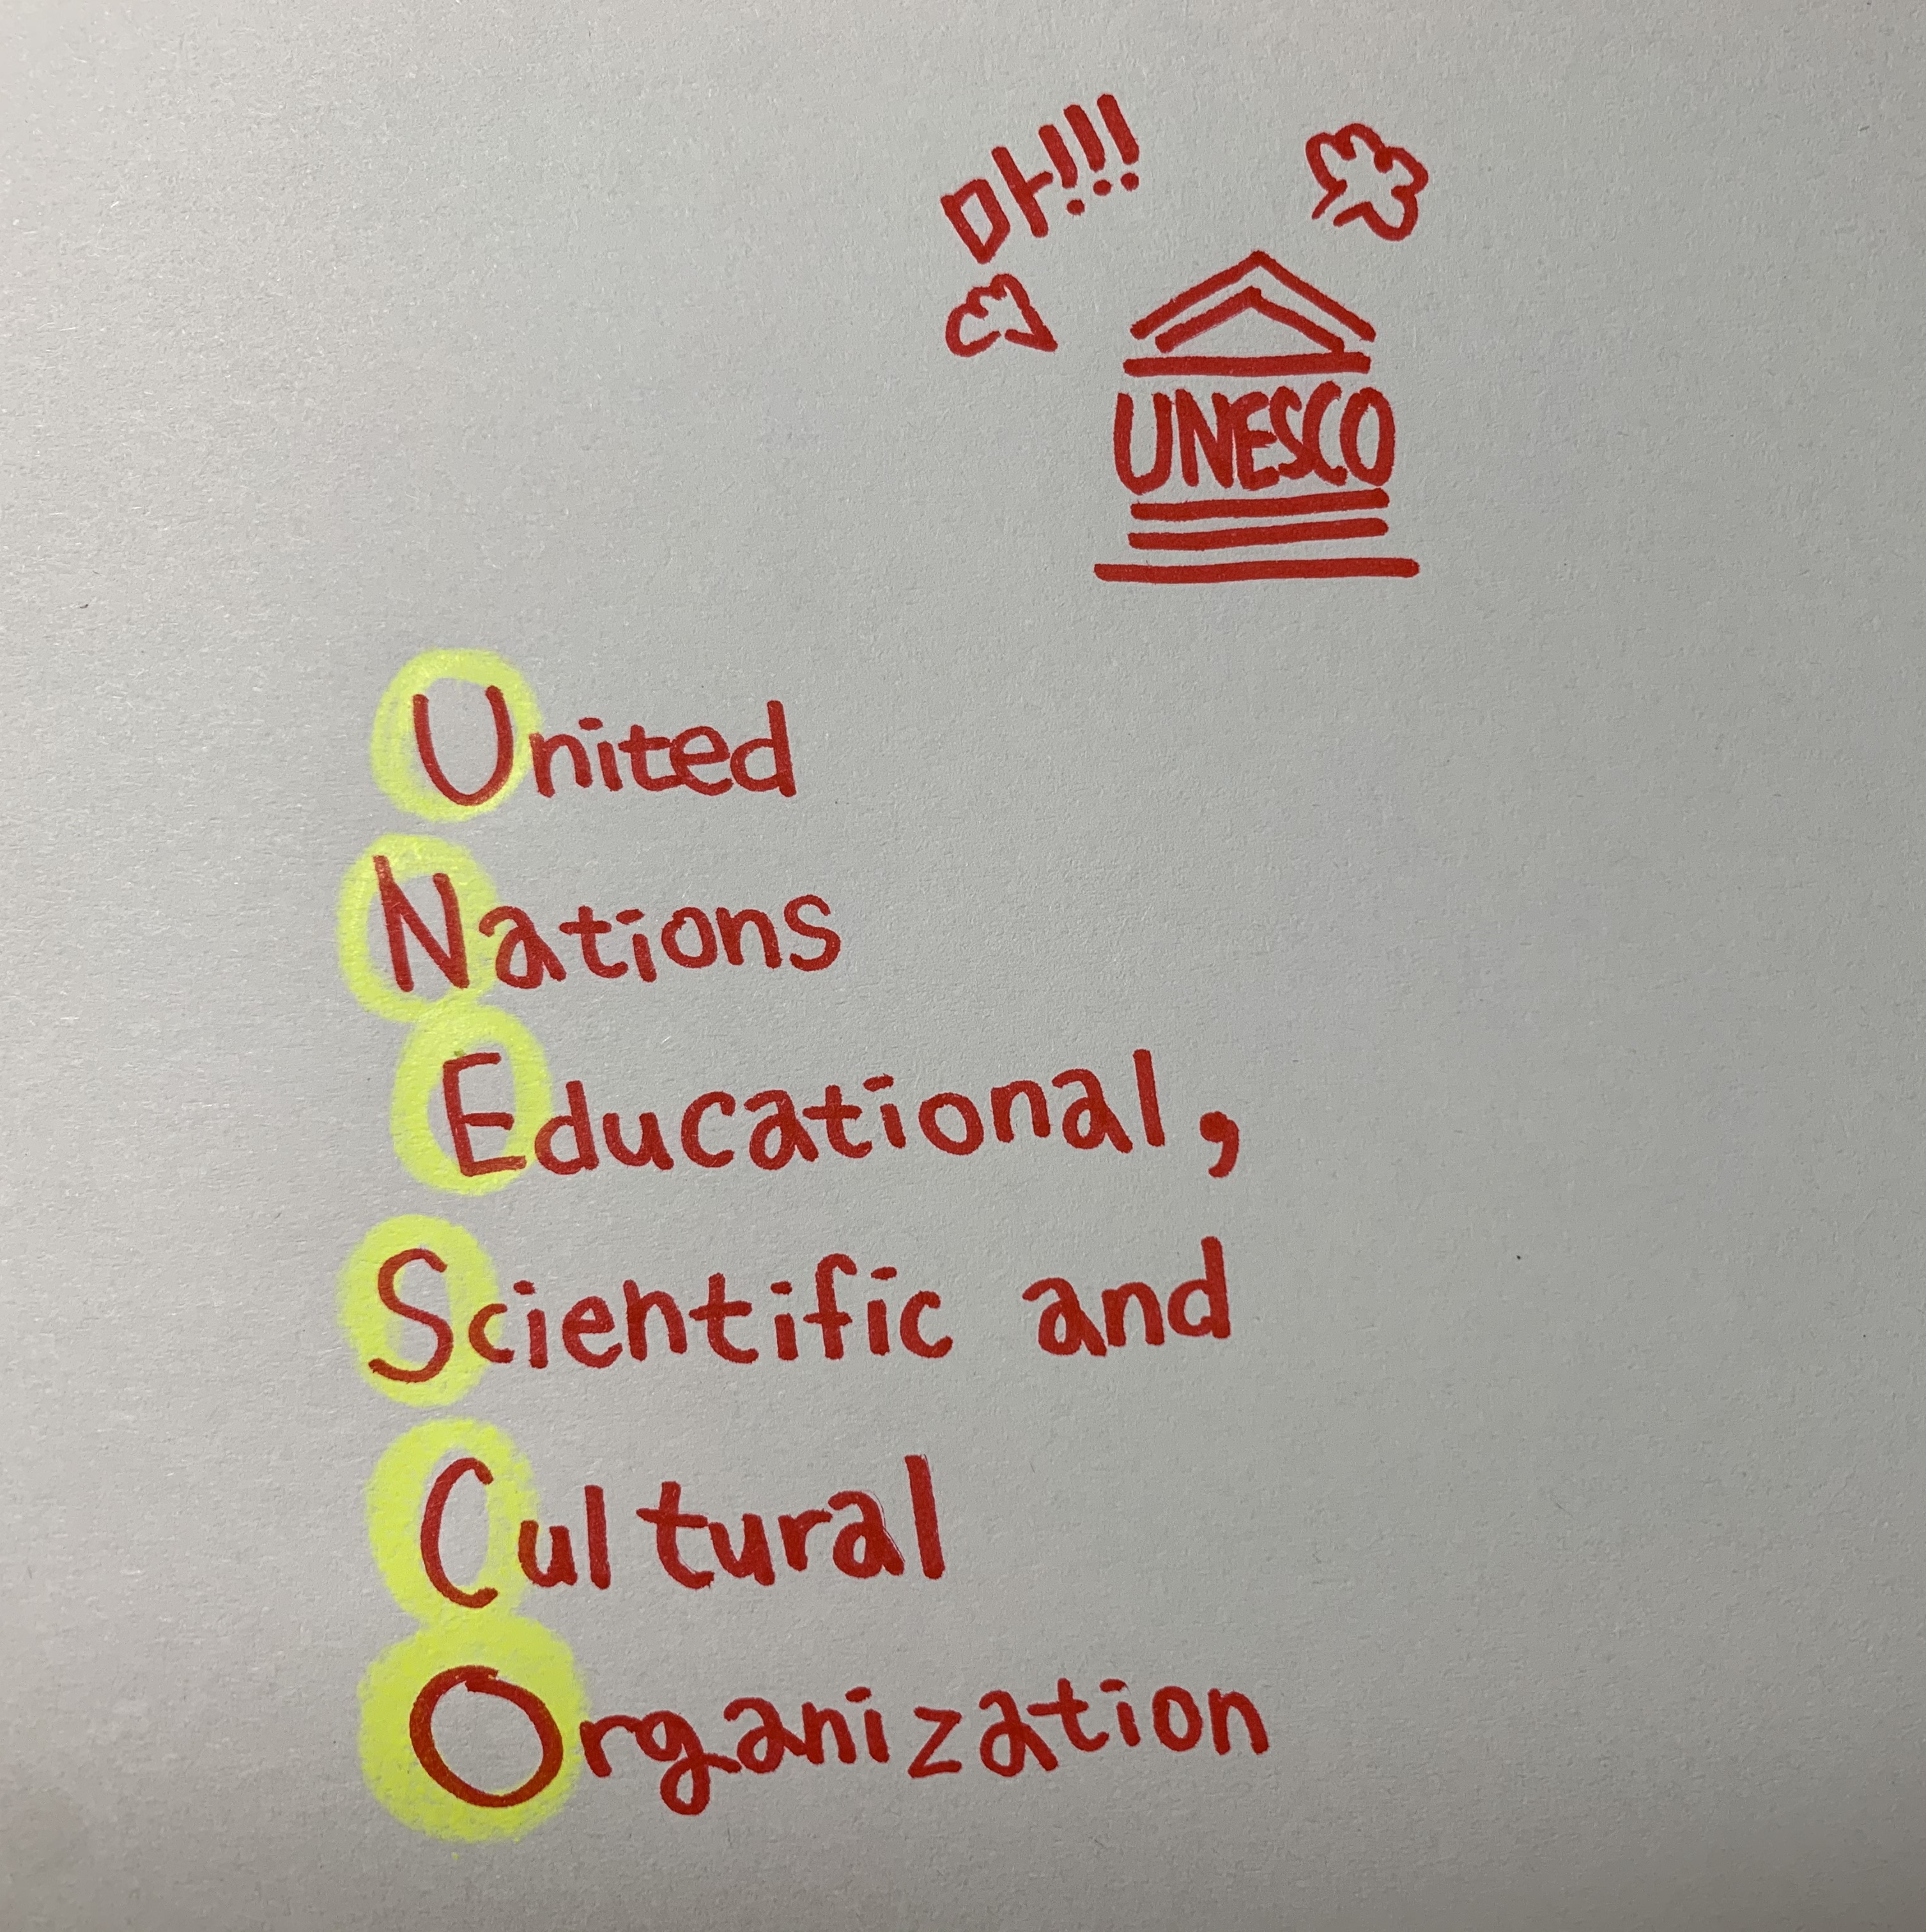 마!!!
UNESCO
United
Nations
Educational,
Scientific and
Cultural
Organization